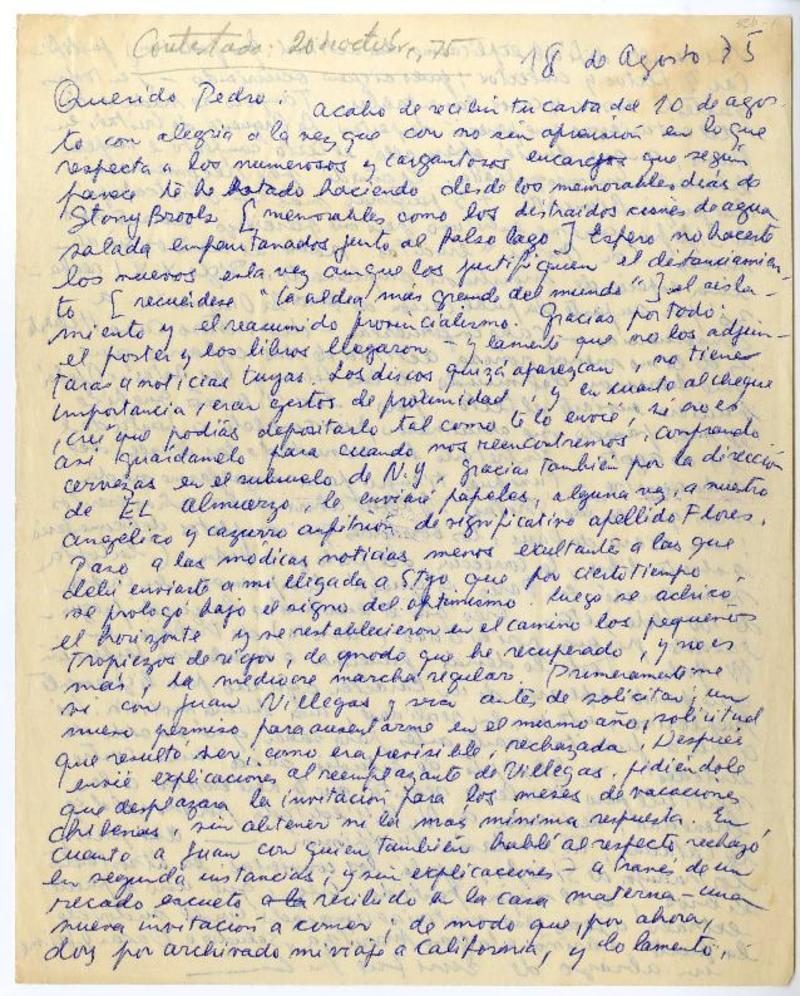 Contestada: 20 octubre, 75
18 de Agosto 75
Querido Pedro: acabo de recibir tu carta del 10 de agos-
to con alegría a la vez que con no sin aprensión en lo que
respecta a los numerosos y cargantosos encargos que según
parece te he estado haciendo desde los memorables días de
Stony Brook [memorables como los distraidos cisnes de agua
salada empantanados junto al falso lago] Espero no hacerte
los nuevos esta vez aunque los justifiquen el distanciamien-
to [recuérdese "la aldea más grande del mundo"] el aisla-
miento y el reasumido provincialismo. Gracias por todo:
el poster y los libros llegaron – y lamenté que no los adjun-
taras a noticias tuyas. Los discos quizá aparezcan, no tiene
importancia, eran gestos de , y en cuanto al cheque
, creí que podías depositarlo tal como te lo envié, si no es
así guárdamelo para cuando nos reencontremos, comprendo
cervezas en el subsuelo de N.Y. Gracias también por la dirección
de EL almuerzo, le enviaré papeles, alguna vez, a nuestro
angélico y cazurro anfitrión de significativo apellido Flores.
Paso a las modicas noticias menos exultantes a las que
debí enviarte a mi llegada a Stgo que por cierto tiempo
se prologó bajo el signo del optimismo. Luego se achicó
el horizonte y se restablecieron en el camino los pequeños
tropiezos de rigor, de modo que he recuperado, y no es
más, la mediocre marcha regular. Primeramente me
vi con Juan Villegas y eso antes de solicitar un
nuevo permiso para ausentarme en el mismo año, solicitud
que resultó ser, como era previsible, rechazada. Después
envié explicaciones al reemplazante de Villegas, pidiéndole
que desplazara la invitación para los meses de vacaciones
chilenas, sin obtener ni la mas mínima respuesta. En
cuanto a Juan con quien también hablé al respecto rechazó
en segunda instancias, y sin explicaciones – a través de un
recado escueto recibido en la casa materna – una
nueva invitación a comer; de modo que, por ahora,
doy por archivado mi viaje a California, y lo lamento,